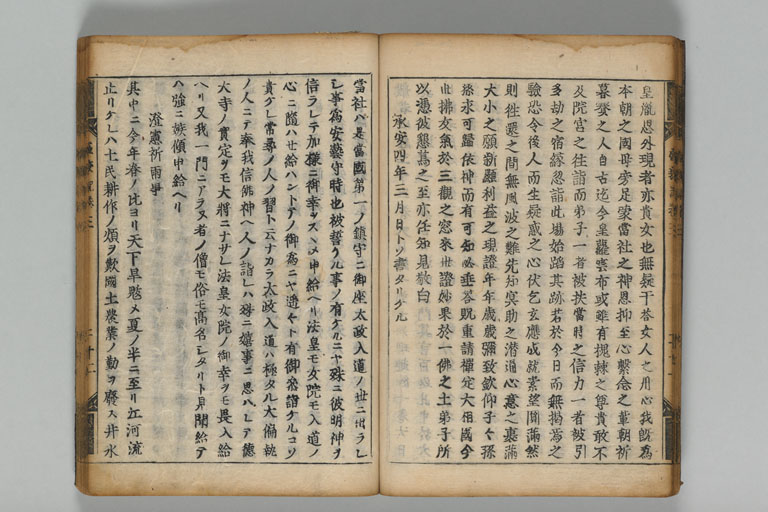 皇胤忽外現者亦貴女也無疑于答女人之用心我既為
本朝之國母旁足蒙當社之神恩抑至心繫念之輩朝祈
暮賽之人自古迄今皇羅雲布或雖有槐棘之尊貴敢不
及院宮之往詣而弟子一者被挾當時之信力一者被引
多劫之宿縁忽詣此場始蹈其跡若於今日而無掲焉之
驗恐令後人而生疑惑之心伏乞玄應成就素望圓滿然
則往還之間無風波之難先知冥助之潜通心意之裏滿
大小之願新顯利益之現證年年歳歳彌致歓仰子子孫
孫永可歸依神而有可知必垂答貺重請權定大伯國今
世拂友氣於三觀之窓来世證妙果於一佛之土弟子所
以憑彼懇篤之至亦任知見敬白
承安四年三月日トソ書タリケル
當社ハ是當國第一ノ鎮守ニ御座太政入道ノ世ニ出ラレ
シ事為安藝守時也被誓ケル事ノ有ケルニヤ殊ニ彼明神ヲ
信ラレテ加様ニ御幸ヲスヽメ申給ヘリ法皇モ女院モ入道ノ
心ニ隨ハせ給ハントテノ御為ニヤ遙々ト有御参詣ケルコソ
貴ケレ常尋ノ人ノ習ト云ナカラ太政入道ハ極タル大偏執
ノ人ニテ奉我信佛神ヘ人ノ詣レハ殊ニ嬉事ニ思ハレテ徳
大寺ノ實定ヲモ大將ニナサレ法皇女院ノ御幸ヲモ畏入給
ヘリ又我一門ニアラヌ者ノ僧モ俗モ高名シタリト見聞給テ
ハ強ニ嫉傾申給ヘリ
澄憲祈雨事
其中ニ今年春ノ比ヨリ天下旱魃メ夏ノ半ニ至リ江河流
止リケレハ土民耕作ノ煩ヲ歎國土農業ノ勤ヲ廢ス井水